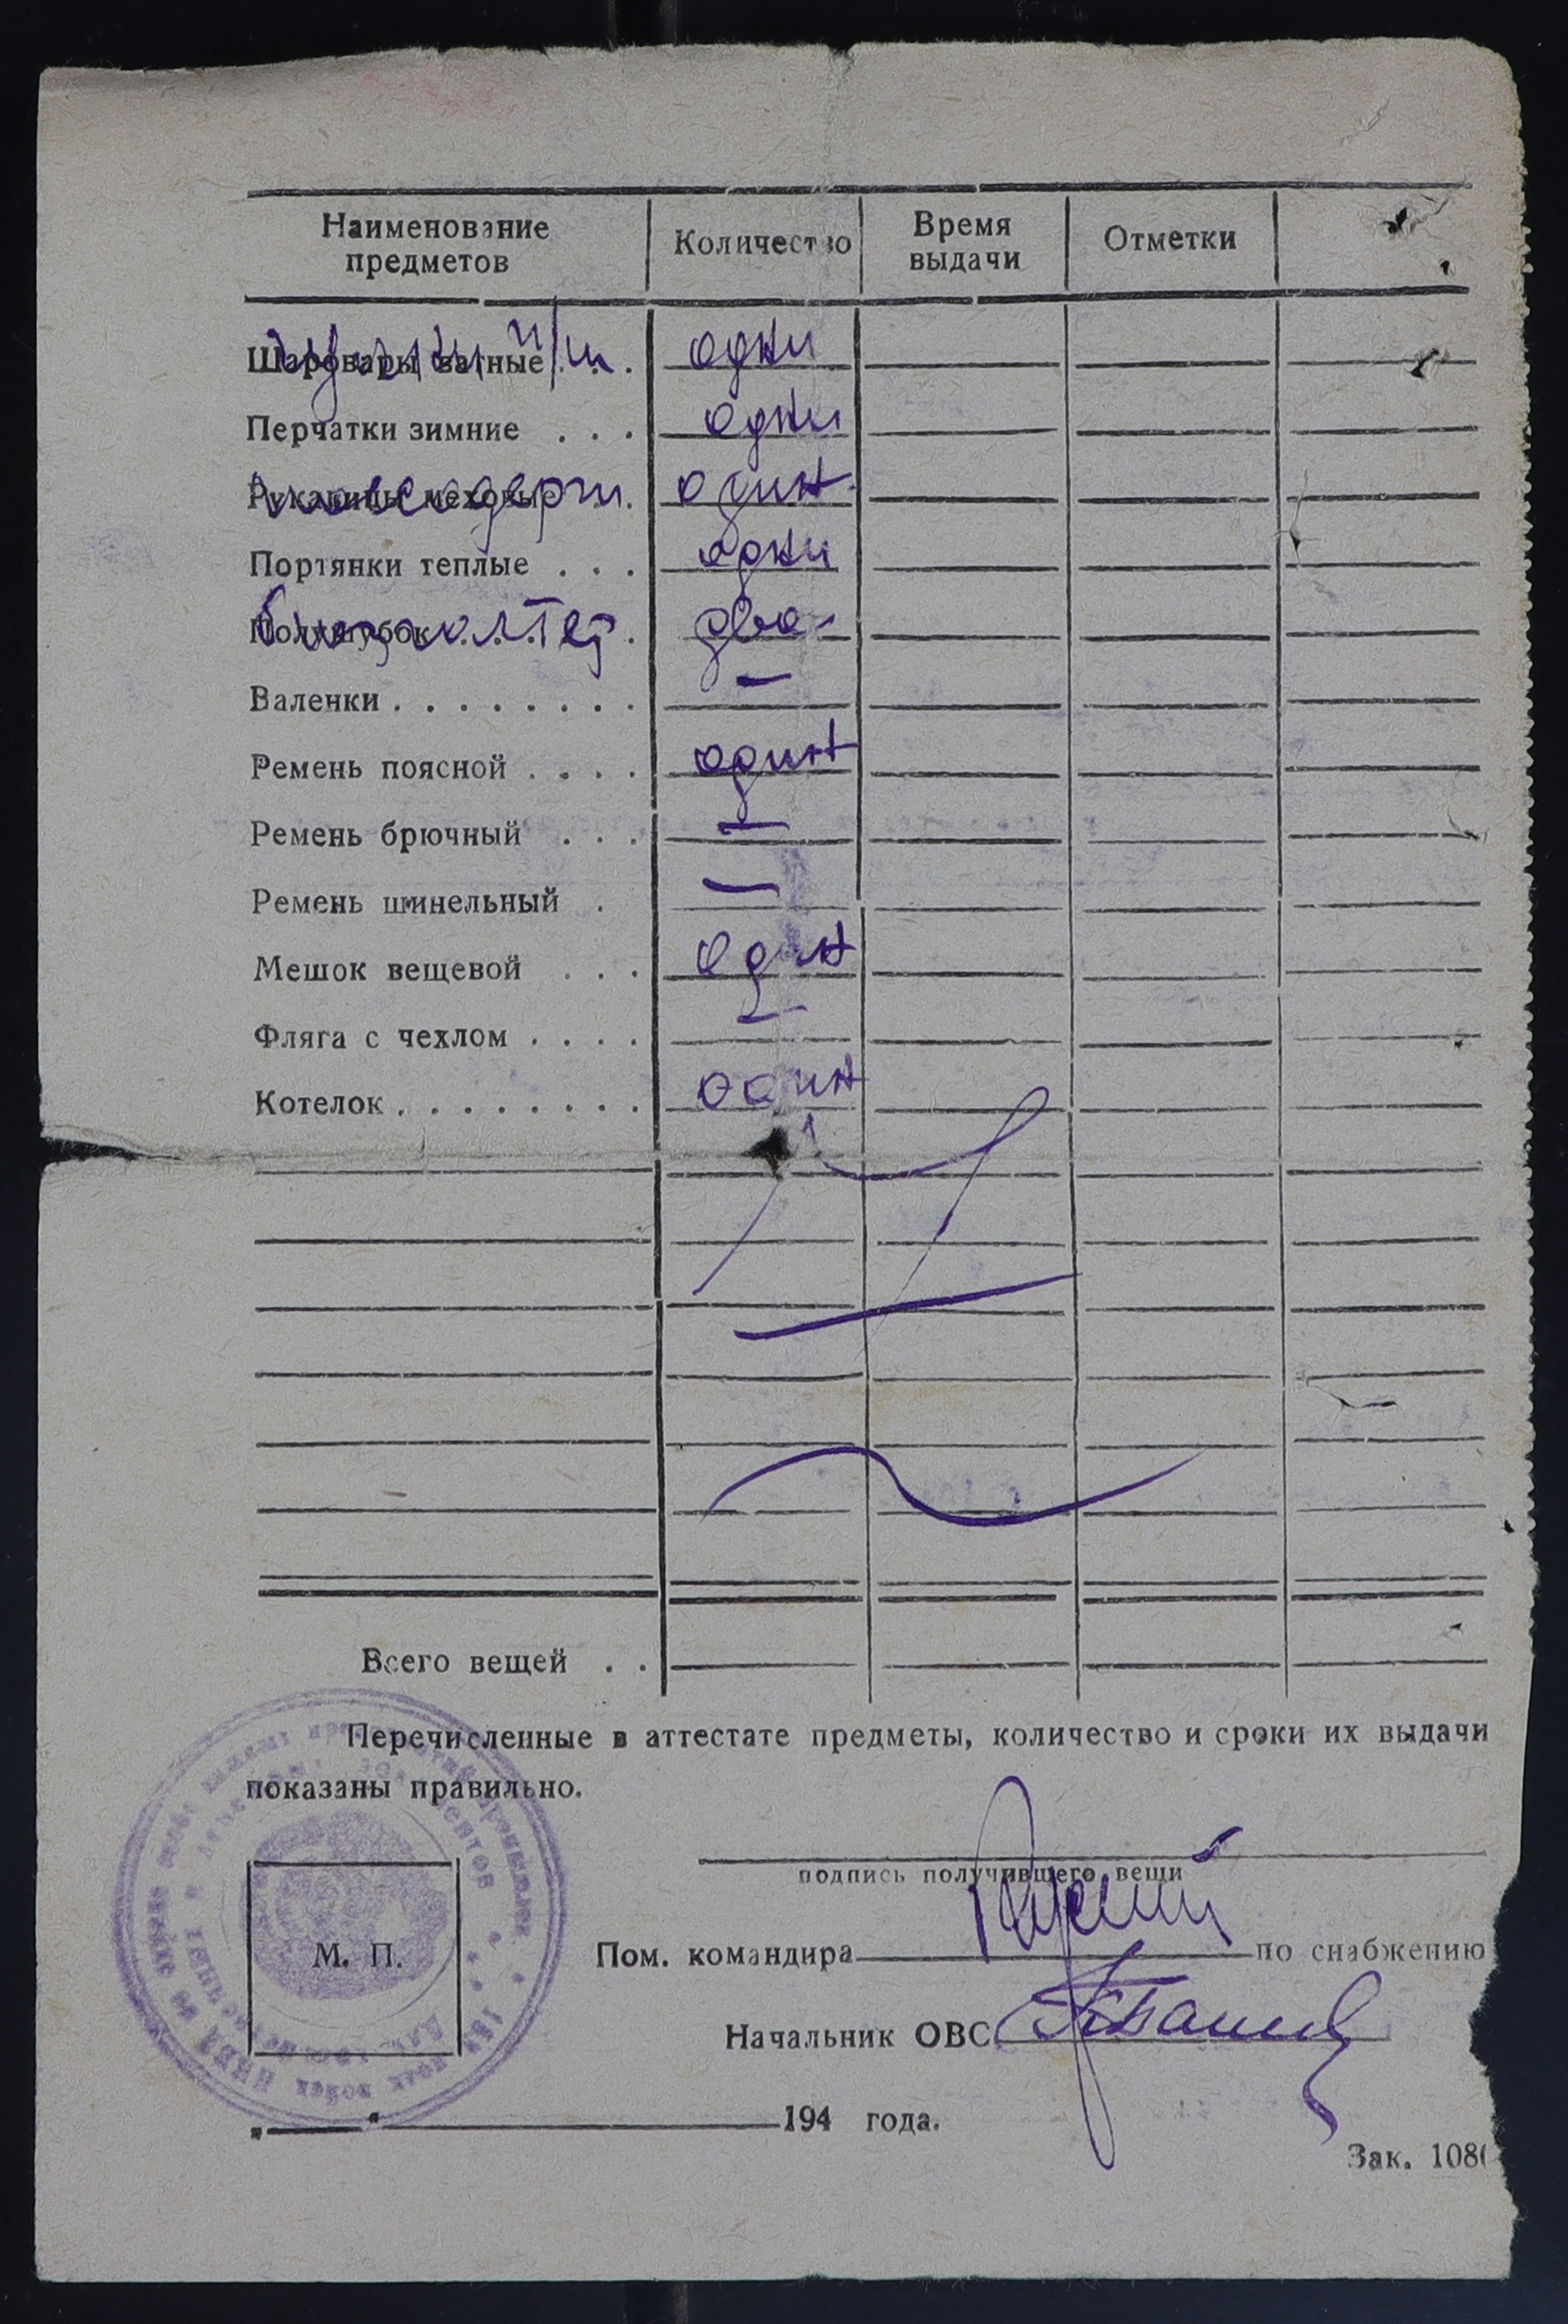 Наименование предметов
Количество
Время выдачи
Отметки
Шаровары ватные . . . одни
Перчатки зимние . . . одни
Рукавицы меховые . . один
Портянки теплые . . . одни
Полушубок . . . . два
Валенки . . . . . . . . —
Ремень поясной . . . . один
Ремень брючный . . . —
Ремень шинельный . —
Мешок вещевой . . . один
Фляга с чехлом . . . . —
Котелок . . . . . . . . один
Всего вещей . .
Перечисленные в аттестате предметы, количество и сроки их выдачи
показаны правильно.
подпись получившего вещи
М. П.
Пом. командира по снабжению
Начальник ОВС
„ “ 194 года.
Зак. 108